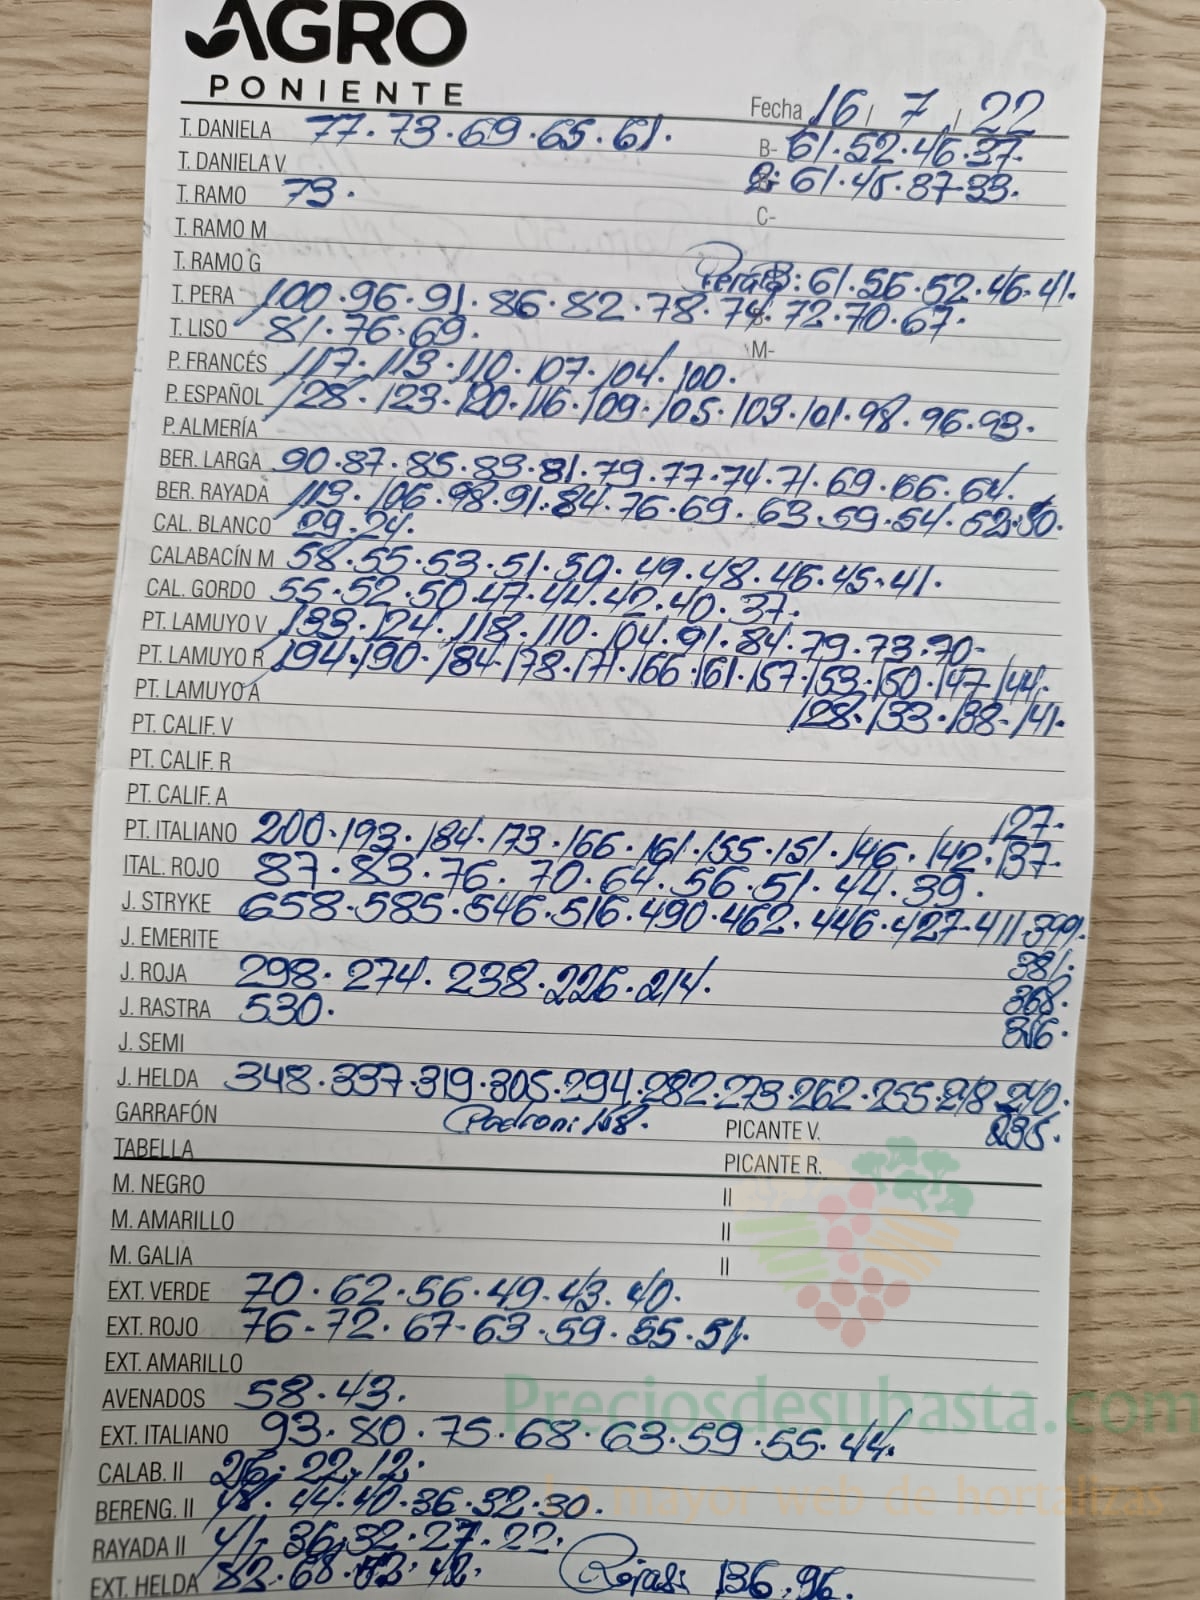 AGRO
PONIENTE
Fecha 16 / 7 / 22
T. DANIELA 77·73·69·65·61· B- 61·52·46·37·
T. DANIELA V 61·45·37·33·
T. RAMO 73· C-
T. RAMO M
T. RAMO G Pera B: 61·56·52·46·41·
T. PERA 100·96·91·86·82·78·74·72·70·67·
T. LISO 81·76·69· M-
P. FRANCÉS 117·113·110·107·104·100·
P. ESPAÑOL 128·123·120·116·109·105·103·101·98·96·93·
P. ALMERÍA
BER. LARGA 90·87·85·83·81·79·77·74·71·69·66·64·
BER. RAYADA 113·106·98·91·84·76·69·63·59·54·52·50·
CAL. BLANCO 29·24·
CALABACÍN M 58·55·53·51·50·49·48·46·45·41·
CAL. GORDO 55·52·50·47·44·42·40·37·
PT. LAMUYO V 133·124·118·110·104·91·84·79·73·70-
PT. LAMUYO R 194·190·184·178·171·166·161·157·153·150·147·144·
PT. LAMUYO A 128·133·138·141·
PT. CALIF. V
PT. CALIF. R
PT. CALIF. A 127·
PT. ITALIANO 200·193·184·173·166·161·155·151·146·142·137·
ITAL. ROJO 87·83·76·70·64·56·51·44·39·
J. STRYKE 658·585·546·516·490·462·446·427·411·399·
J. EMERITE 381·
J. ROJA 298·274·238·226·214· 368·
J. RASTRA 530·
J. SEMI
J. HELDA 348·337·319·305·294·282·273·262·255·248·240·
GARRAFÓN Padron: 148· PICANTE V. 235·
TABELLA PICANTE R.
M. NEGRO II
M. AMARILLO II
M. GALIA II
EXT. VERDE 70·62·56·49·43·40·
EXT. ROJO 76-72·67-63·59·55·51·
EXT. AMARILLO
AVENADOS 58·43·
Preciosdesubasta.com
EXT. ITALIANO 93·80·75·68·63·59·55·44·
CALAB. II 26·22·12·
la mayor web de hortalizas
BERENG. II 48·44·40·36·32·30·
RAYADA II 41·36·32·27·22·
EXT. HELDA 82·68·52·42· Rojas: 136·96·